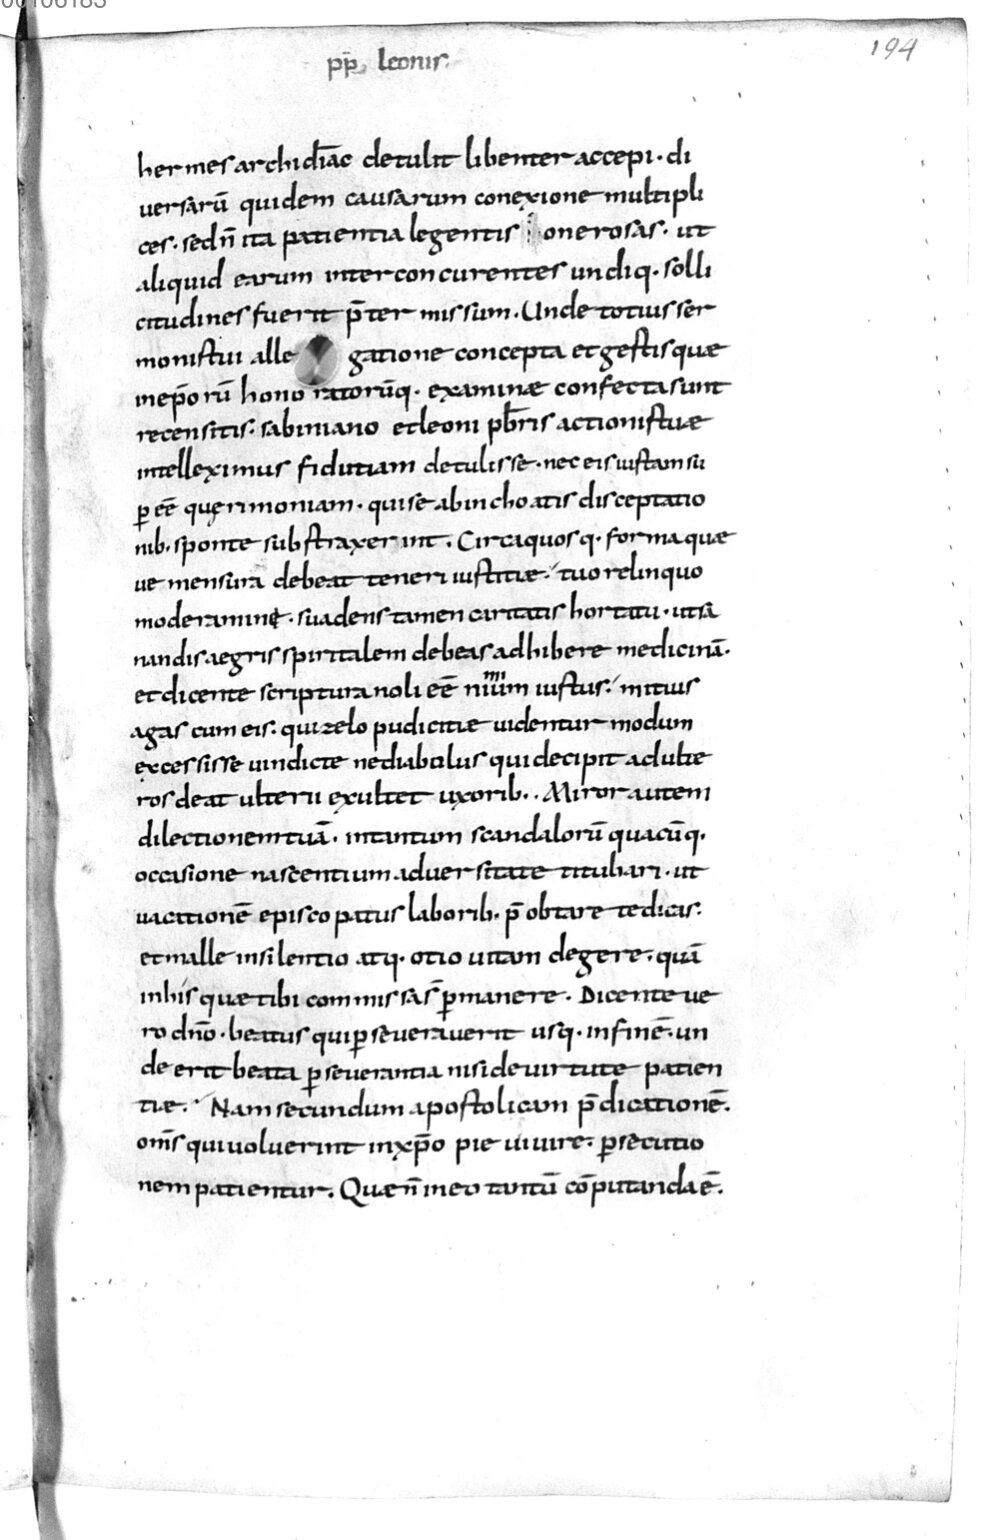 00106183
194
pp̄ leonis.
hermes archidiac̄ detulit libenter accepi · di
uersarū quidem causarum conexione multipli
ces · sed n̄ ita patientia legentis onerosas · ut
aliquid earum inter concurentes undiq · solli
citudines fuerit p̄ter missum. Unde totius ser
monis tui alle gatione concepta et gestis quæ
inep̄orū honoratorūq · examinæ confecta sunt
recensitis. sabiniano et leoni pb̄ris actionis tuæ
intelleximus fidutiam detulisse · nec eis iustam su
p eē querimoniam · qui se ab inchoatis disceptatio
nib · sponte substraxerint. Circa quos q · forma quæ
ue mensura debeat teneri iustitiæ · tuo relinquo
moderamine · suadens tamen caritatis hortatu · ut sa
nandis aegris spiritalem debeas adhibere medicinā.
et dicente scriptura noli eē nimium iustus · mitius
agas cum eis · qui zelo pudicitiæ uidentur modum
excessisse uindicte ne diabulus qui decipit adulte
ros de at ulterii exultet uxorib.. Miror autem
dilectionem tuā · intantum scandalorū quacūq ·
occasione nascentium aduersitate titubari · ut
uacitionē episcopatus laborib · p̄ obtare te dicis.
et malle in silentio atq · otio uitam degere · quā
in his quæ tibi commissas p̄manere. Dicente ue
ro dn̄o · beatus qui p seuerauerit usq · in finē. un
de erit beata p seuerantia nisi de uirtute patien
tiæ. Nam secundum apostolicam p̄dicationē.
om̄s qui uoluerint in xp̄o pie uiuire · p̄secutio
nem patientur. Quæ n̄ in eo tantū cōputanda ē.